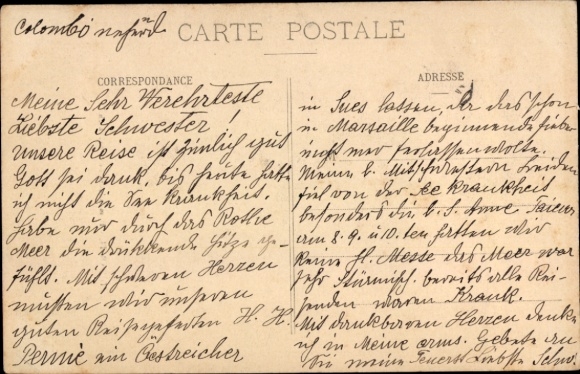 Colombo
CARTE POSTALE
CORRESPONDANCE
Meine Sehr Verehrteste
Liebste Schwester!
Unsere Reise ist zimlich gut
Gott sei dank, bis heute hatte
ich nicht die See krankheit.
Habe nur durch das Rothe
Meer die drükkende Hitze ge-
fühlt. Mit schweren Herzen
mußten wir unseren
guten Reisegeferten H. H.
Pernie ein Östreicher
ADRESSE
in Sues lassen, der das schon
in Marsaille beginnende Fieber
nicht mer verlassen wolte.
Meine l. Mitschwestern leiden
fiel von der See krankheit
besonders die l. S. Anne
am 8. 9. u 10. ten hatten wir
keine H. Messe das Meer war
sehr Stürmisch. bereits alle Rei-
senden waren Krank.
Mit dankbaren Herzen denke
ich in Meine arms. Gebete an
Sie meine Teuerst Liebste Schw.